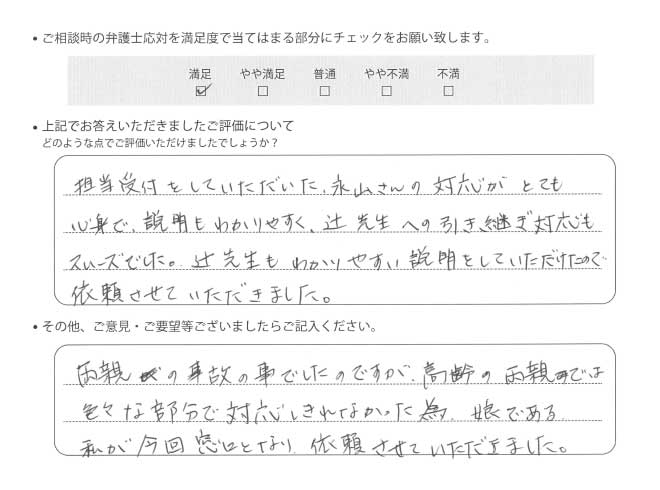 • ご相談時の弁護士応対を満足度で当てはまる部分にチェックをお願い致します。
満足 やや満足 普通 やや不満 不満
• 上記でお答えいただきましたご評価について
どのような点でご評価いただけましたでしょうか？
担当受付をしていただいた、永山さんの対応がとても
心身で、説明もわかりやすく、辻先生への引き継ぎ対応も
スムーズでした。辻先生もわかりやすい説明をしていただけたので
依頼させていただきました。
• その他、ご意見・ご要望等ございましたらご記入ください。
両親の事故の事でしたのですが、高齢の両親では
色々な部分で対応しきれなかった為、娘である
私が今回窓口となり、依頼させていただきました。